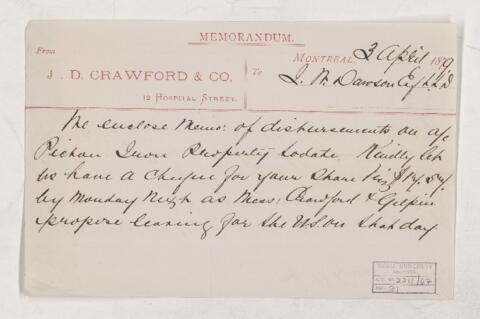 MEMORANDUM.
From
MONTREAL, 3 April 1879
J. D. CRAWFORD & CO.
To
J. W. Dawson Esq LLD
12 HOSPITAL STREET.
We enclose Memo: of disbursements on a/c
Pictou Iron Property to date. Kindly let
us have a Cheque for your Share Viz $
by Monday next as Messrs Crawford & Gilpin
propose leaving for the U.S. on that day
McGILL UNIVERSITY
ARCHIVES
ACC. NO. 2211/67
REF. 21